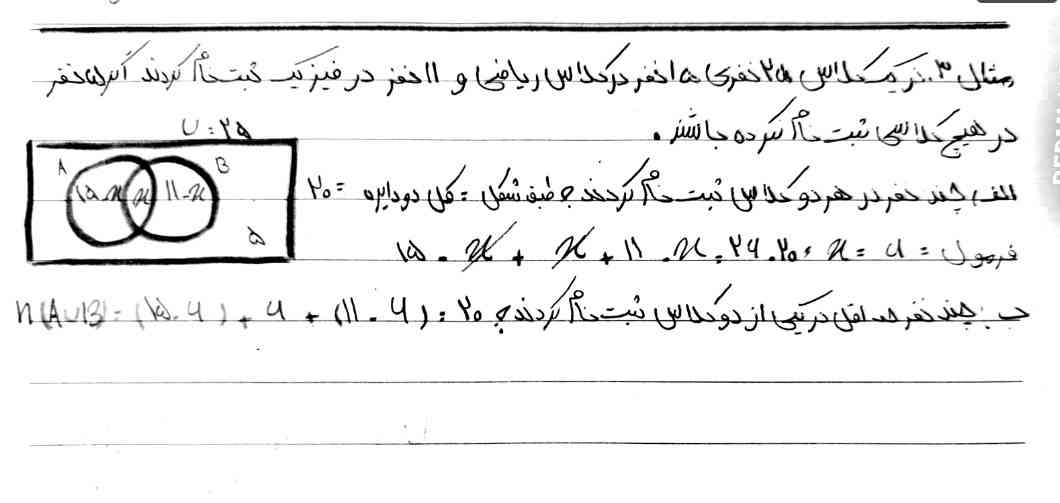 مثال ۳. در یک کلاس ۲۵ نفری ۱۵ نفر در کلاس ریاضی و ۱۱ نفر در فیزیک ثبت نام کردند اگر ۵ نفر
در هیچ کلاسی ثبت نام نکرده باشند.
U: ۲۵
A B
۱۵-x x ۱۱-x
۵
الف) چند نفر در هر دو کلاس ثبت نام کردند؟ طبق شکل = کل دو دایره = ۲۰
فرمول = ۱۵ - x + x + ۱۱ - x = ۲۶-۲۰ , x = ۶
ب: چند نفر حداقل در یکی از دو کلاس ثبت نام کردند؟ n(A∪B) = (۱۵-۶) + ۶ + (۱۱-۶) = ۲۰